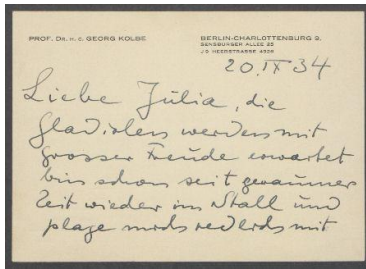 PROF. DR. H. C. GEORG KOLBE
BERLIN-CHARLOTTENBURG 9.
SENSBURGER ALLEE 25
J 9 HEERSTRASSE 4209
20.IX 34
Liebe Julia, die
Gladiolen werden mit
grosser Freude erwartet
bin schon seit geraumer
Zeit wieder im Stall und
plage mich redlich mit